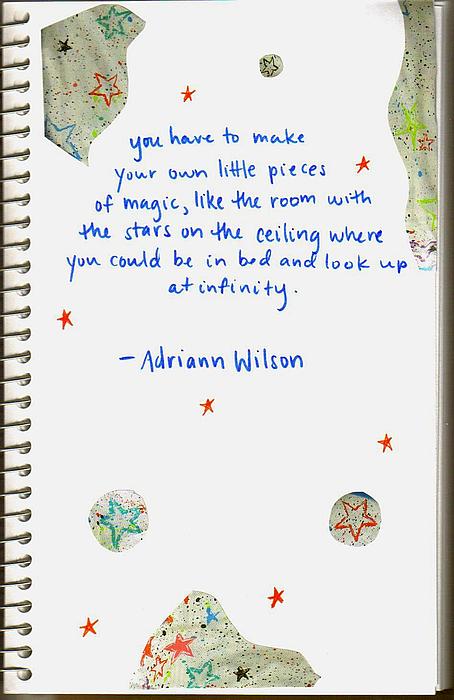 you have to make
your own little pieces
of magic, like the room with
the stars on the ceiling where
you could be in bed and look up
at infinity.
- Adriann Wilson